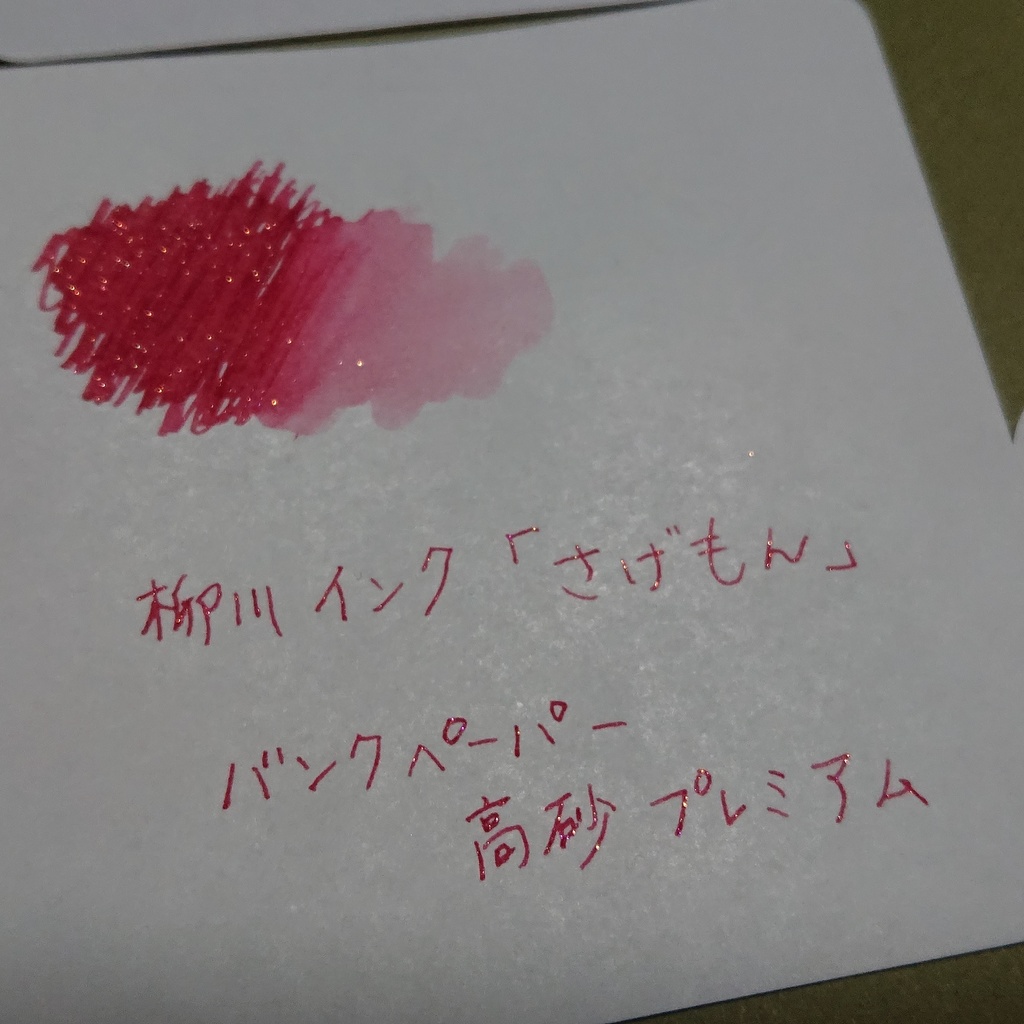 柳川インク「さげもん」
バンクペーパー
高砂プレミアム